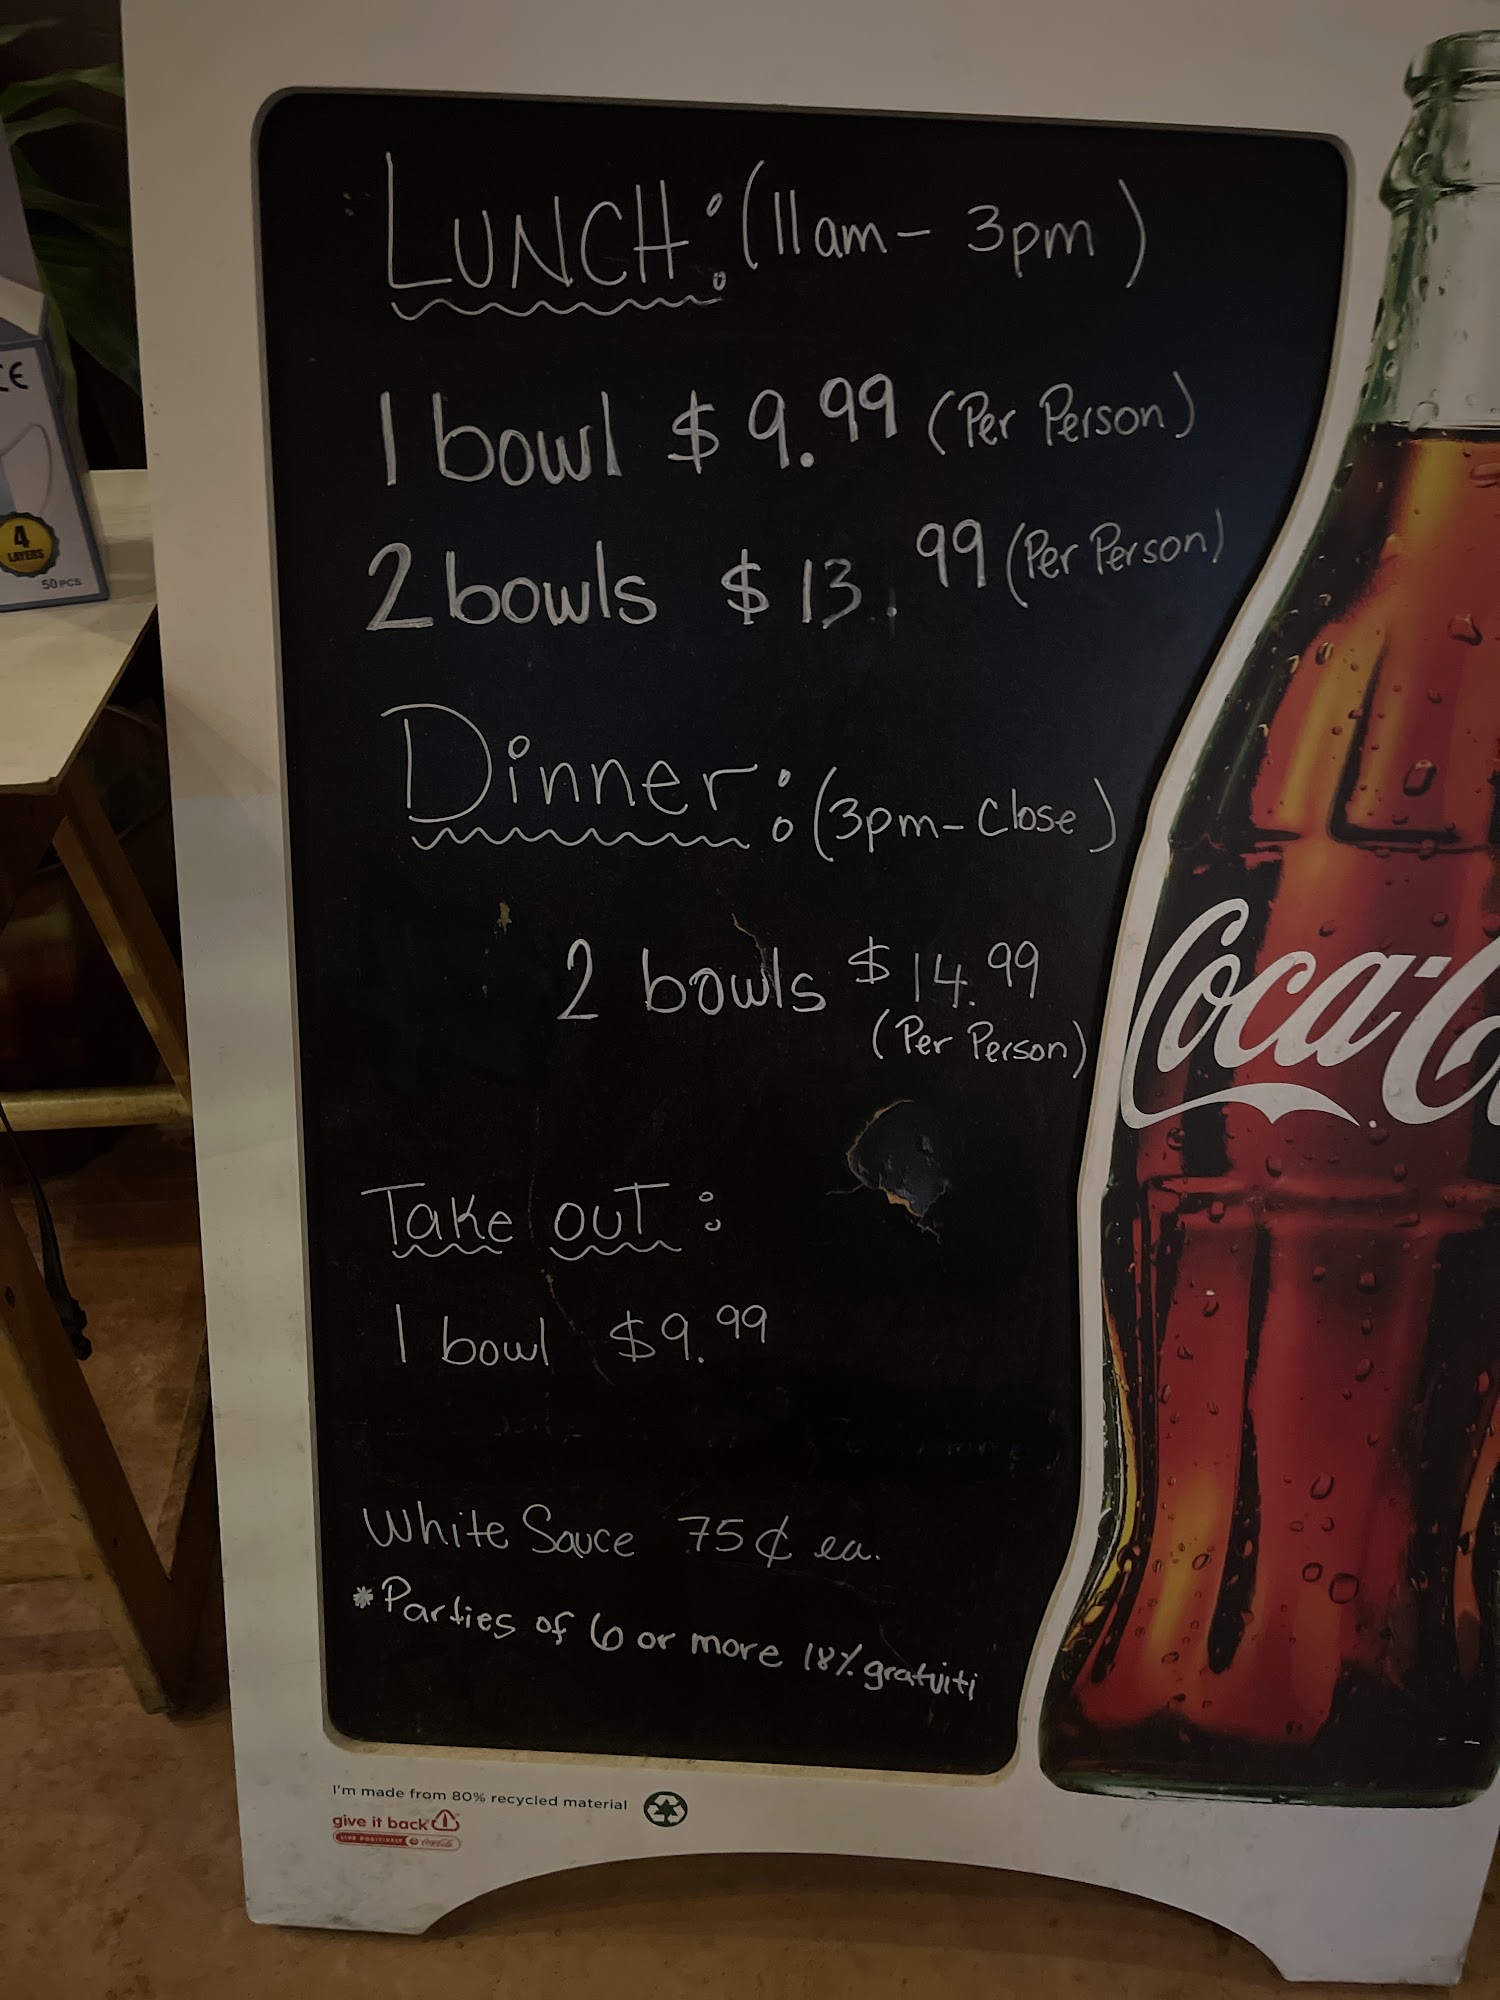 LUNCH: (11am - 3pm)
1 bowl $9.99 (Per Person)
2 bowls $13.99 (Per Person)
Dinner: (3pm - Close)
2 bowls $14.99
(Per Person)
Take out:
1 bowl $9.99
White Sauce 75¢ ea.
*Parties of 6 or more 18% gratuiti
I'm made from 80% recycled material
give it back
LIVE POSITIVELY Coca-Cola
Coca-C
CE
4
LAYERS
50 PCS